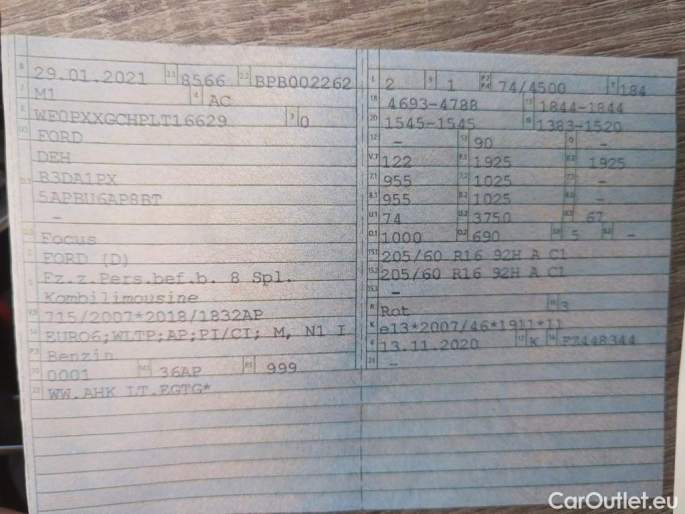 29.01.2021 8566 BPB002262
M1 AC
WF0PXXGCHPLT16629 0
FORD
DEH
B3DA1PX
5APBU6AP8BT
-
Focus
FORD (D)
Fz.z.Pers.bef.b. 8 Spl.
Kombilimousine
715/2007*2018/1832AP
EURO6;WLTP;AP;PI/CI; M, N1 I
Benzin
0001 36AP 999
WW.AHK LT.EGTG*
2 1 74/4500 184
4693-4788 1844-1844
1545-1545 1383-1520
- 90 -
122 1925 1925
955 1025 -
955 1025 -
74 3750 67
1000 690 5 -
205/60 R16 92H A C1
205/60 R16 92H A C1
-
Rot 3
e13*2007/46*1911*11
13.11.2020 K FZ448344
-
CarOutlet.eu